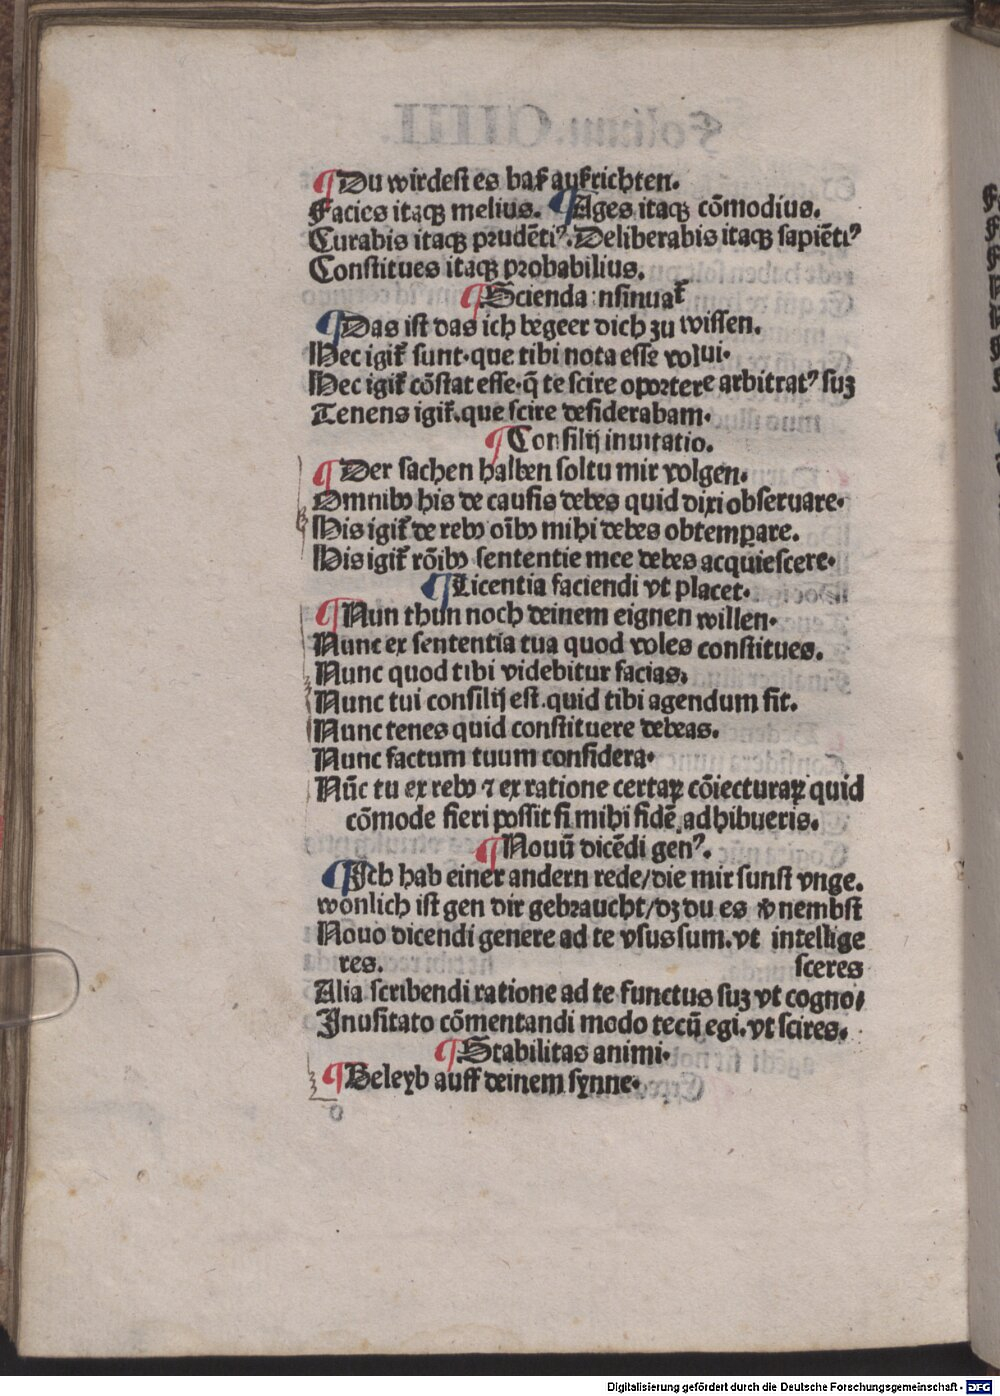 ¶Du wirdest es baſ aufrichten.
Facies itaqꝫ melius. ¶Ages itaqꝫ cōmodius.
Curabis itaqꝫ prudētiꝰ. Deliberabis itaqꝫ sapiētiꝰ
Constitues itaqꝫ probabilius.
¶Scienda insinuat̄
¶Das ist das ich begeer dich zu wissen.
Hec igit̄ sunt·que tibi nota esse volui·
Hec igit̄ cōstat esse·q̄ te scire oportere arbitratꝰ suꝫ
Tenens igit̄.que scire desiderabam·
¶Consilij inuitatio.
¶Der sachen halben soltu mir volgen·
Omnibꝰ his de causis debes quid dixi obseruare·
His igit̄ de rebꝰ oībꝰ mihi debes obtemꝑare.
His igit̄ rōibꝰ sententie mee debes acquiescere·
¶Licentia faciendi vt placet·
¶Nun thun noch deinem eignen willen·
Nunc ex sententia tua quod voles constitues.
Nunc quod tibi videbitur facias.
Nunc tui consilij est.quid tibi agendum sit.
Nunc tenes quid constituere debeas.
Nunc factum tuum considera·
Nūc tu ex rebꝰ ⁊ ex ratione certaꝝ cōiecturaꝝ quid
cōmode fieri possit si mihi fidē adhibueris.
¶Nouū dicēdi genꝰ.
¶Ich hab einer andern rede/die mir sunst vnge.
wonlich ist gen dir gebraucht/dꝫ du es v̄nembst
Nouo dicendi genere ad te vsus sum.vt intellige
res. sceres
Alia scribendi ratione ad te functus suꝫ vt cogno/
Inusitato cōmentandi modo tecū egi.vt scires.
¶Stabilitas animi·
¶Beleyb auff deinem synne·
Digitalisierung gefördert durch die Deutsche Forschungsgemeinschaft - DFG